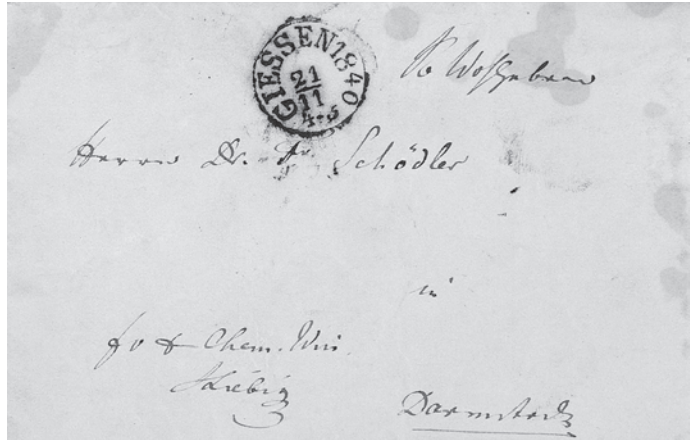 GIESSEN 1840
21
11
4-5
Sr Wohlgeboren
Herrn Dr. Fr Schödler
in
fr
Chem.
Liebig
Darmstadt